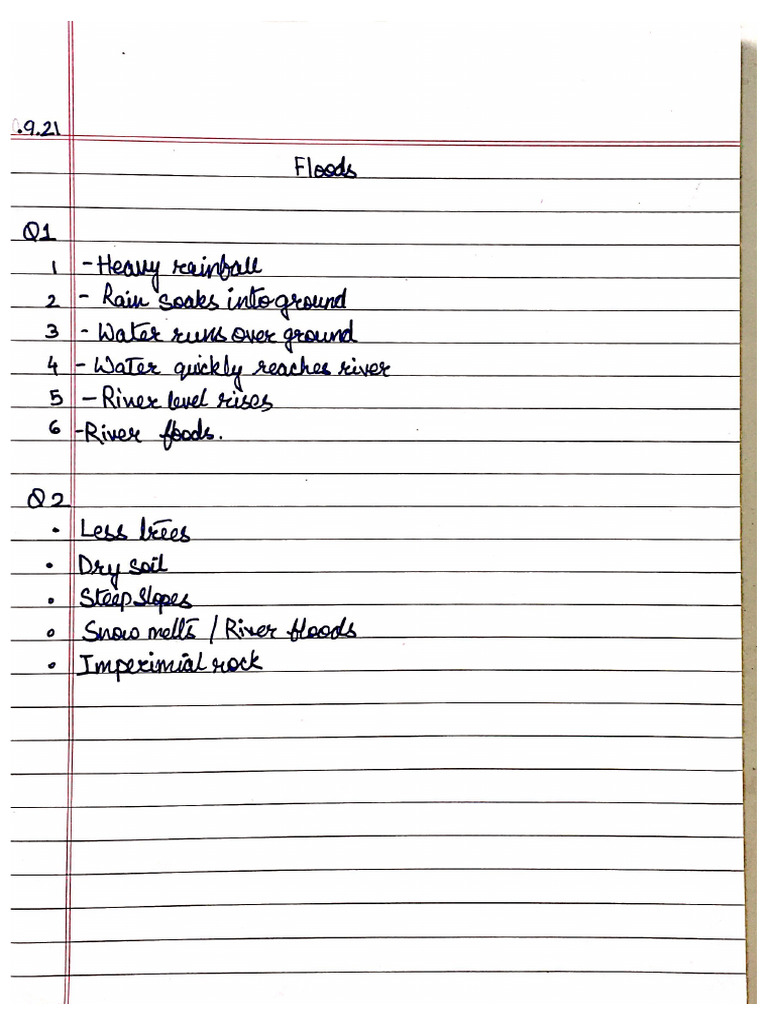 .9.21
Floods
Q1
1 - Heavy rainfall
2 - Rain soaks into ground
3 - Water runs over ground
4 - Water quickly reaches river
5 - River level rises
6 - River floods.
Q2
• Less trees
• Dry soil
• Steep slopes
• Snow melts / River floods
• Imperimial rock